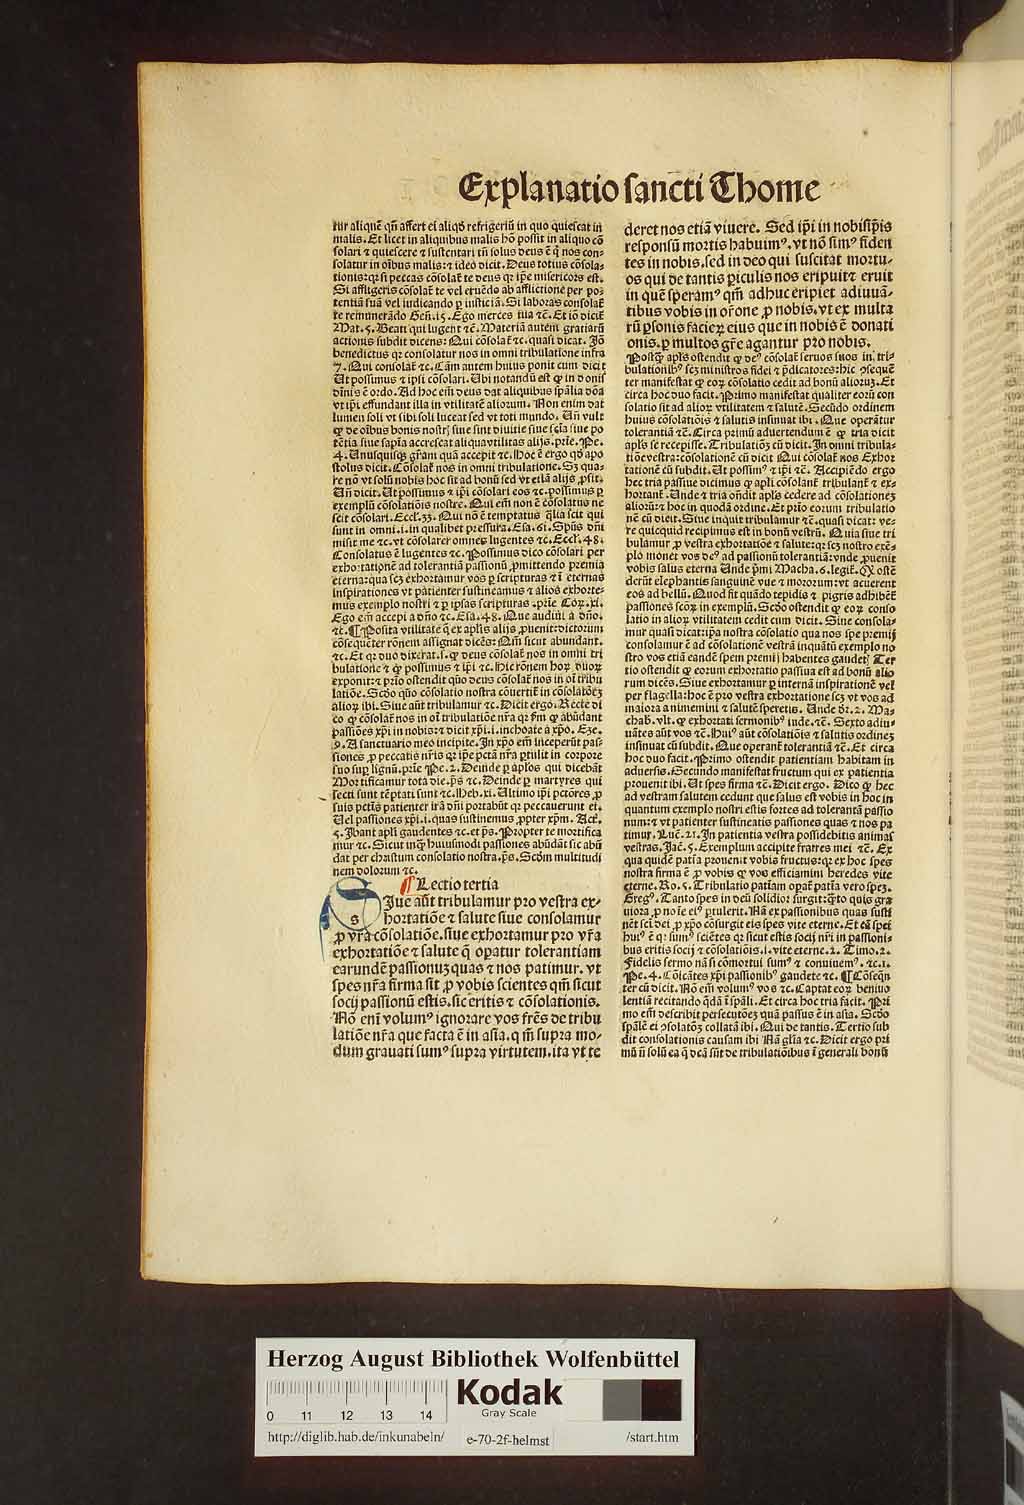 Explanatio sancti Thome
tur aliquē qn̄ affert ei aliqd̓ refrigeriū in quo quiescat in
malis. Et licet in aliquibus malis hō possit in aliquo cō
solari ⁊ quiescere ⁊ sustentari tn̄ solus deus ē q̇ nos con⸗
solatur in oībus malis: ⁊ ideo dicit. Deus totius cōsola⸗
tionis: qꝛ si peccas cōsolat̉ te deus qꝛ ip̄e misericors est.
Si affligeris cōsolat̉ te vel eruēdo ab afflictione per po⸗
tentiā suā vel iudicando ꝑ iusticiā. Si laboras consolat̉
te remunerādo Gen̄. 15. Ego merces tua ⁊c̄. Et iō dicit̉
Mat. 5. Beati qui lugent ⁊c̄. Materiā autem gratiarū
actionis subdit dicens: Qui cōsolat̉ ⁊c. quasi dicat. Iō
benedictus qꝛ consolatur nos in omni tribulatione infra
7. Qui consolat̉ ⁊c. Cām autem huius ponit cum dicit
Ut possimus ⁊ ipsi cōsolari. Ubi notandū est ꝙ in donis
dīnis ē ordo. Ad hoc em̄ deus dat aliquibus spālia dōa
vt ip̄i effundant illa in vtilitatē aliorum. Non enim dat
lumen soli vt sibi soli luceat sed vt toti mundo. Un̄ vult
ꝙ de oībus bonis nostr̄ siue sint diuitie siue sciā siue po
tētia siue sapīa accrescat aliqua vtilitas alijs. pr̄ie. Pe.
4. Unusquisqꝫ gr̄am quā accepit ⁊c. Hoc ē ergo qd̓ apo
stolus dicit. Cōsolat̉ nos in omni tribulatione. Sꝫ qua⸗
re nō vt solū nobis hoc sit ad bonū sed vt etiā alijs ꝓsit.
Un̄ dicit. Ut possimus ⁊ ip̄i cōsolari eos ⁊c. possimus ꝑ
exemplū cōsolatiōis nostre. Qui em̄ non ē cōsolatus ne
scit cōsolari. Eccl̓. 33. Qui nō ē temptatus q̄lia scit qui
sunt in omni. i. in qualibet pressura. Esa. 61. Spūs dn̄i
misit me ⁊c. vt cōsolarer omnes lugentes ⁊c. Eccl̓. 48.
Consolatus ē lugentes ⁊c. Possimus dico cōsolari per
exhortationē ad tolerantiā passionū ꝓmittendo premia
eterna: qua scꝫ exhortamur vos ꝑ scripturas ⁊ ī eternas
inspirationes vt patienter sustineamus ⁊ alios exhorte⸗
mus exemplo nostri ⁊ ꝑ ipsas scripturas. pr̄ie. Coꝝ. xi.
Ego em̄ accepi a dn̄o ⁊c. Esa. 48. Que audiui a dn̄o.
⁊c. ¶ Posita vtilitate q̄ ex aplīs alijs ꝓuenit: dictorum
cōsequēter rōnem assignat dicēs: Qm̄ sicut abundant.
⁊c. Et qꝛ duo dixerat. s. ꝙ deus cōsolat̉ nos in omni tri
bulatione ⁊ ꝙ possimus ⁊ ip̄i ⁊c. Hic rōnem hoꝝ duoꝝ
exponit: ⁊ prīo ostendit quō deus cōsolat̉ nos in oī tribu
latiōe. Scd̓o quō cōsolatio nostra cōuertit̉ in cōsolatōꝫ
alioꝝ ibi. Siue aūt tribulamur ⁊c. Dicit ergo. Recte di
co ꝙ cōsolat̉ nos in oī tribulatiōe nr̄a qꝛ sm̄ ꝙ abūdant
passiōes xp̄i in nobis: ⁊ dicit xp̄i. i. inchoate a xp̄o. Eze.
9. A sanctuario meo incipite. In xp̄o em̄ inceperūt pas⸗
siones ꝓ peccatis nr̄is qꝛ ip̄e pctā nr̄a ꝑtulit in corpore
suo suꝑ lignū. pr̄ie Pe. 2. Deinde ꝑ aplōs qui dicebāt
Mortificamur tota die. p̄s ⁊c. Deinde ꝑ martyres qui
secti sunt tēptati sunt ⁊c. Heb. xi. Ultimo ip̄i pctōres ꝓ
suis pctīs patienter irā dn̄i portabūt qꝛ peccauerunt ei.
Uel passiones xp̄i. i. quas sustinemus ꝓpter xp̄m. Act̉.
5. Ibant apl̓i gaudentes ⁊c. et p̄s. Propter te mortifica
mur ⁊c. Sicut inqͥt huiusmodi passiones abūdāt sic abū
dat per christum consolatio nostra. p̄s. Scd̓m multitudi
nem dolorum ⁊c.
¶ Lectio tertia
Siue aūt tribulamur pro vestra ex⸗
hortatiōe ⁊ salute siue consolamur
ꝓ vr̄a cōsolatiōe. siue exhortamur pro vr̄a
exhortatiōe ⁊ salute q̄ oꝑatur tolerantiam
earundē passionuꝫ quas ⁊ nos patimur. vt
spes nr̄a firma sit ꝓ vobis scientes qm̄ sicut
socij passionū estis. sic eritis ⁊ cōsolationis.
Nō enī volumꝰ ignorare vos fr̄es de tribu
latiōe nr̄a que facta ē in asia. q̄m supra mo⸗
dum grauati sumꝰ supra virtutem. ita vt te
deret nos etiā viuere. Sed ip̄i in nobisip̄is
responsū mortis habuimꝰ. vt nō simꝰ fiden
tes in nobis. sed in deo qui suscitat mortu⸗
os qui de tantis ꝑiculis nos eripuit ⁊ eruit
in quē speramꝰ qm̄ adhuc eripiet adiuuā⸗
tibus vobis in or̄one ꝓ nobis. vt ex multa
rū ꝑsonis facieꝝ eius que in nobis ē donati
onis. ꝑ multos gr̄e agantur pro nobis.
Postqͣ apl̓s ostendit ꝙ deꝰ cōsolat̉ seruos suos in tri⸗
bulationibꝰ scꝫ ministros fidei ⁊ p̄dicatores: hic ꝯsequē
ter manifestat ꝙ eoꝝ cōsolatio cedit ad bonū alioruꝫ. Et
circa hoc duo facit. Primo manifestat qualiter eoꝝ con
solatio sit ad alioꝝ vtilitatem ⁊ salutē. Secūdo ordinem
huius cōsolatiōis ⁊ salutis insinuat ibi. Que operātur
tolerantiā ⁊c̄. Circa primū aduertendum ē ꝙ tria dicit
apl̓s se recepisse. Tribulatiōꝫ cū dicit. In omni tribula⸗
tiōe vestra: cōsolationē cū dicit Qui cōsolat̉ nos Exhor
tationē cū subdit. Ut possimꝰ ⁊ ip̄i ⁊c̄. Accipiēdo ergo
hec tria passiue dicimus ꝙ apl̓i cōsolant̉ tribulant̉ ⁊ ex⸗
hortant̉. Unde ⁊ tria on̄dit apl̓s cedere ad cōsolationeꝫ
alioruꝫ: ⁊ hoc in quodā ordine. Et prīo eorum tribulatio
nē cū dicit. Siue inquit tribulamur ⁊c̄. quasi dicat: ve⸗
re quicquid recipimus est in bonū vestrū. Quia siue tri
bulamur ꝓ vestra exhortatiōe ⁊ salute: qꝛ scꝫ nostro exē⸗
plo monet vos deꝰ ad passionū tolerantiā: vnde ꝓuenit
vobis salus eterna Unde p̄mi Macha. 6. legit̉. Qd̓ ostē
derūt elephantis sanguinē vue ⁊ mororum: vt acuerent
eos ad bellū. Quod fit quādo tepidis ⁊ pigris adhibēt̉
passiones scōꝝ in exemplū. Scd̓o ostendit ꝙ eoꝝ conso
latio in alioꝝ vtilitatem cedit cum dicit. Siue consola⸗
mur quasi dicat: ip̄a nostra cōsolatio qua nos spe premij
consolamur ē ad cōsolationē vestrā inquātū exemplo no
stro vos etiā eandē spem premij habentes gaudet̉. Ter
tio ostendit ꝙ eorum exhortatio passiua est ad bonū alio
rum dicēs. Siue exhortamur ꝑ internā inspirationē vel
per flagella: hoc ē pro vestra exhortatione scꝫ vt vos ad
maiora animemini ⁊ salutē speretis. Unde dr̄. 2. Ma⸗
chab. vlt. ꝙ exhortati sermonibꝰ iude. ⁊c̄. Sexto adiu⸗
uātes aūt vos ⁊c̄. Huiꝰ aūt cōsolatiōis ⁊ salutis ordineꝫ
insinuat cū subdit. Que operant̉ tolerantiā ⁊c̄. Et circa
hoc duo facit. Primo ostendit patientiam habitam in
aduersis. Secundo manifestat fructum qui ex patientia
prouenit ibi. Ut spes firma ⁊c̄. Dicit ergo. Dico ꝙ hec
ad vestram salutem cedunt que salus est vobis in hoc in
quantum exemplo nostri estis fortes ad tolerantā passio
num: ⁊ vt patienter sustineatis passiones quas ⁊ nos pa
timur. Luc̄. 21. In patientia vestra possidebitis animas
vestras. Iac̄. 5. Exemplum accipite fratres mei ⁊c̄. Ex
qua quidē patīa prouenit vobis fructus: qꝛ ex hoc spes
nostra firma ē ꝓ vobis ꝙ vos efficiamini heredes vite
eterne. Ro. 5. Tribulatio patīam opat̉ patīa vero speꝫ.
Gregꝰ. Tanto spes in deū solidior surgit: q̄to quis gra
uiora ꝓ noīe eiꝰ ꝑtulerit. Nā ex passionibus quas susti
nēt sci dei ꝓ xp̄o cōsurgit eis spes vite eterne. Et cā spei
huiꝰ ē qꝛ sumꝰ sciētes qꝛ sicut estis socij nr̄i in passioni⸗
bus eritis socij ⁊ cōsolatiōis. i. vite eterne. 2. Timo. 2.
Fidelis sermo nā si cōmortui sumꝰ ⁊ conuiuemꝰ. ⁊c. 1.
Pe. 4. Cōicātes xp̄i passionibꝰ gaudete ⁊c. ¶ Cōseqn̄
ter cū dicit. Nō em̄ volumꝰ vos ⁊c. Captat eoꝝ beniuo
lentiā recitando q̄dā ī sp̄ali. Et circa hoc tria facit. Pri
mo em̄ describit persecutōeꝫ quā passus ē in asia. Scd̓o
spālē ei ꝯsolatōꝫ collatā ibi. Qui de tantis. Tertio sub
dit consolationis causam ibi Nā gl̓ia ⁊c. Dicit ergo pri
mū n̄ solū ea q̄ dcā sūt de tribulatiōibus ī generali bonū
Herzog August Bibliothek Wolfenbüttel
Kodak
Gray Scale
0 11 12 13 14
http://diglib.hab.de/inkunabeln/ e-70-2f-helmst /start.htm